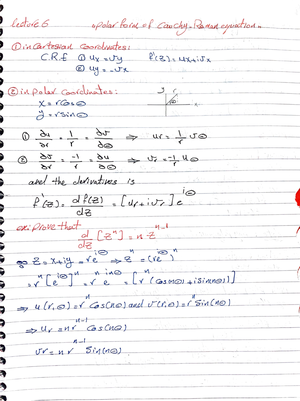 lecture 6 "polar form of Cauchy-Roman equation"
① in Cartesian coordinates:
C.R.E ① ux = vy f'(z) = ux + ivx
② uy = -vx
② in polar coordinates:
x = r cos θ
y = r sin θ
① ∂u/∂r = 1/r ∂v/∂θ ⇒ ur = 1/r vθ
② ∂v/∂r = -1/r ∂u/∂θ ⇒ vr = -1/r uθ
and the derivatives is
f'(z) = df(z)/dz = [ur + ivr] e^iθ
ex: Prove that d/dz [z^n] = n z^n-1
z = x + iy = re^iθ ⇒ z^n = (re^iθ)^n
= r^n [e^iθ]^n = r^n e^inθ = [r^n (cos nθ + i sin nθ)]
⇒ u(r,θ) = r^n cos(nθ) and v(r,θ) = r^n sin(nθ)
⇒ ur = n r^n-1 cos(nθ)
vr = n r^n-1 sin(nθ)